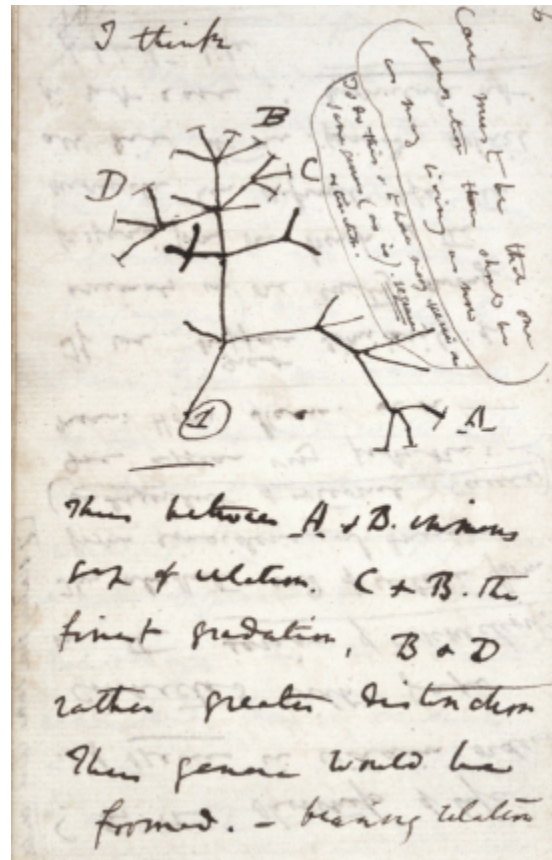 I think
Case must be that one
generation then should be
as many living as now
To do this & to have many species in
same genus (as is) requires
extinction.
B
C
D
A
1
Thus between A & B. immense
gap of relation. C & B. the
finest gradation, B & D
rather greater distinction
Thus genera would be
formed. — bearing relation